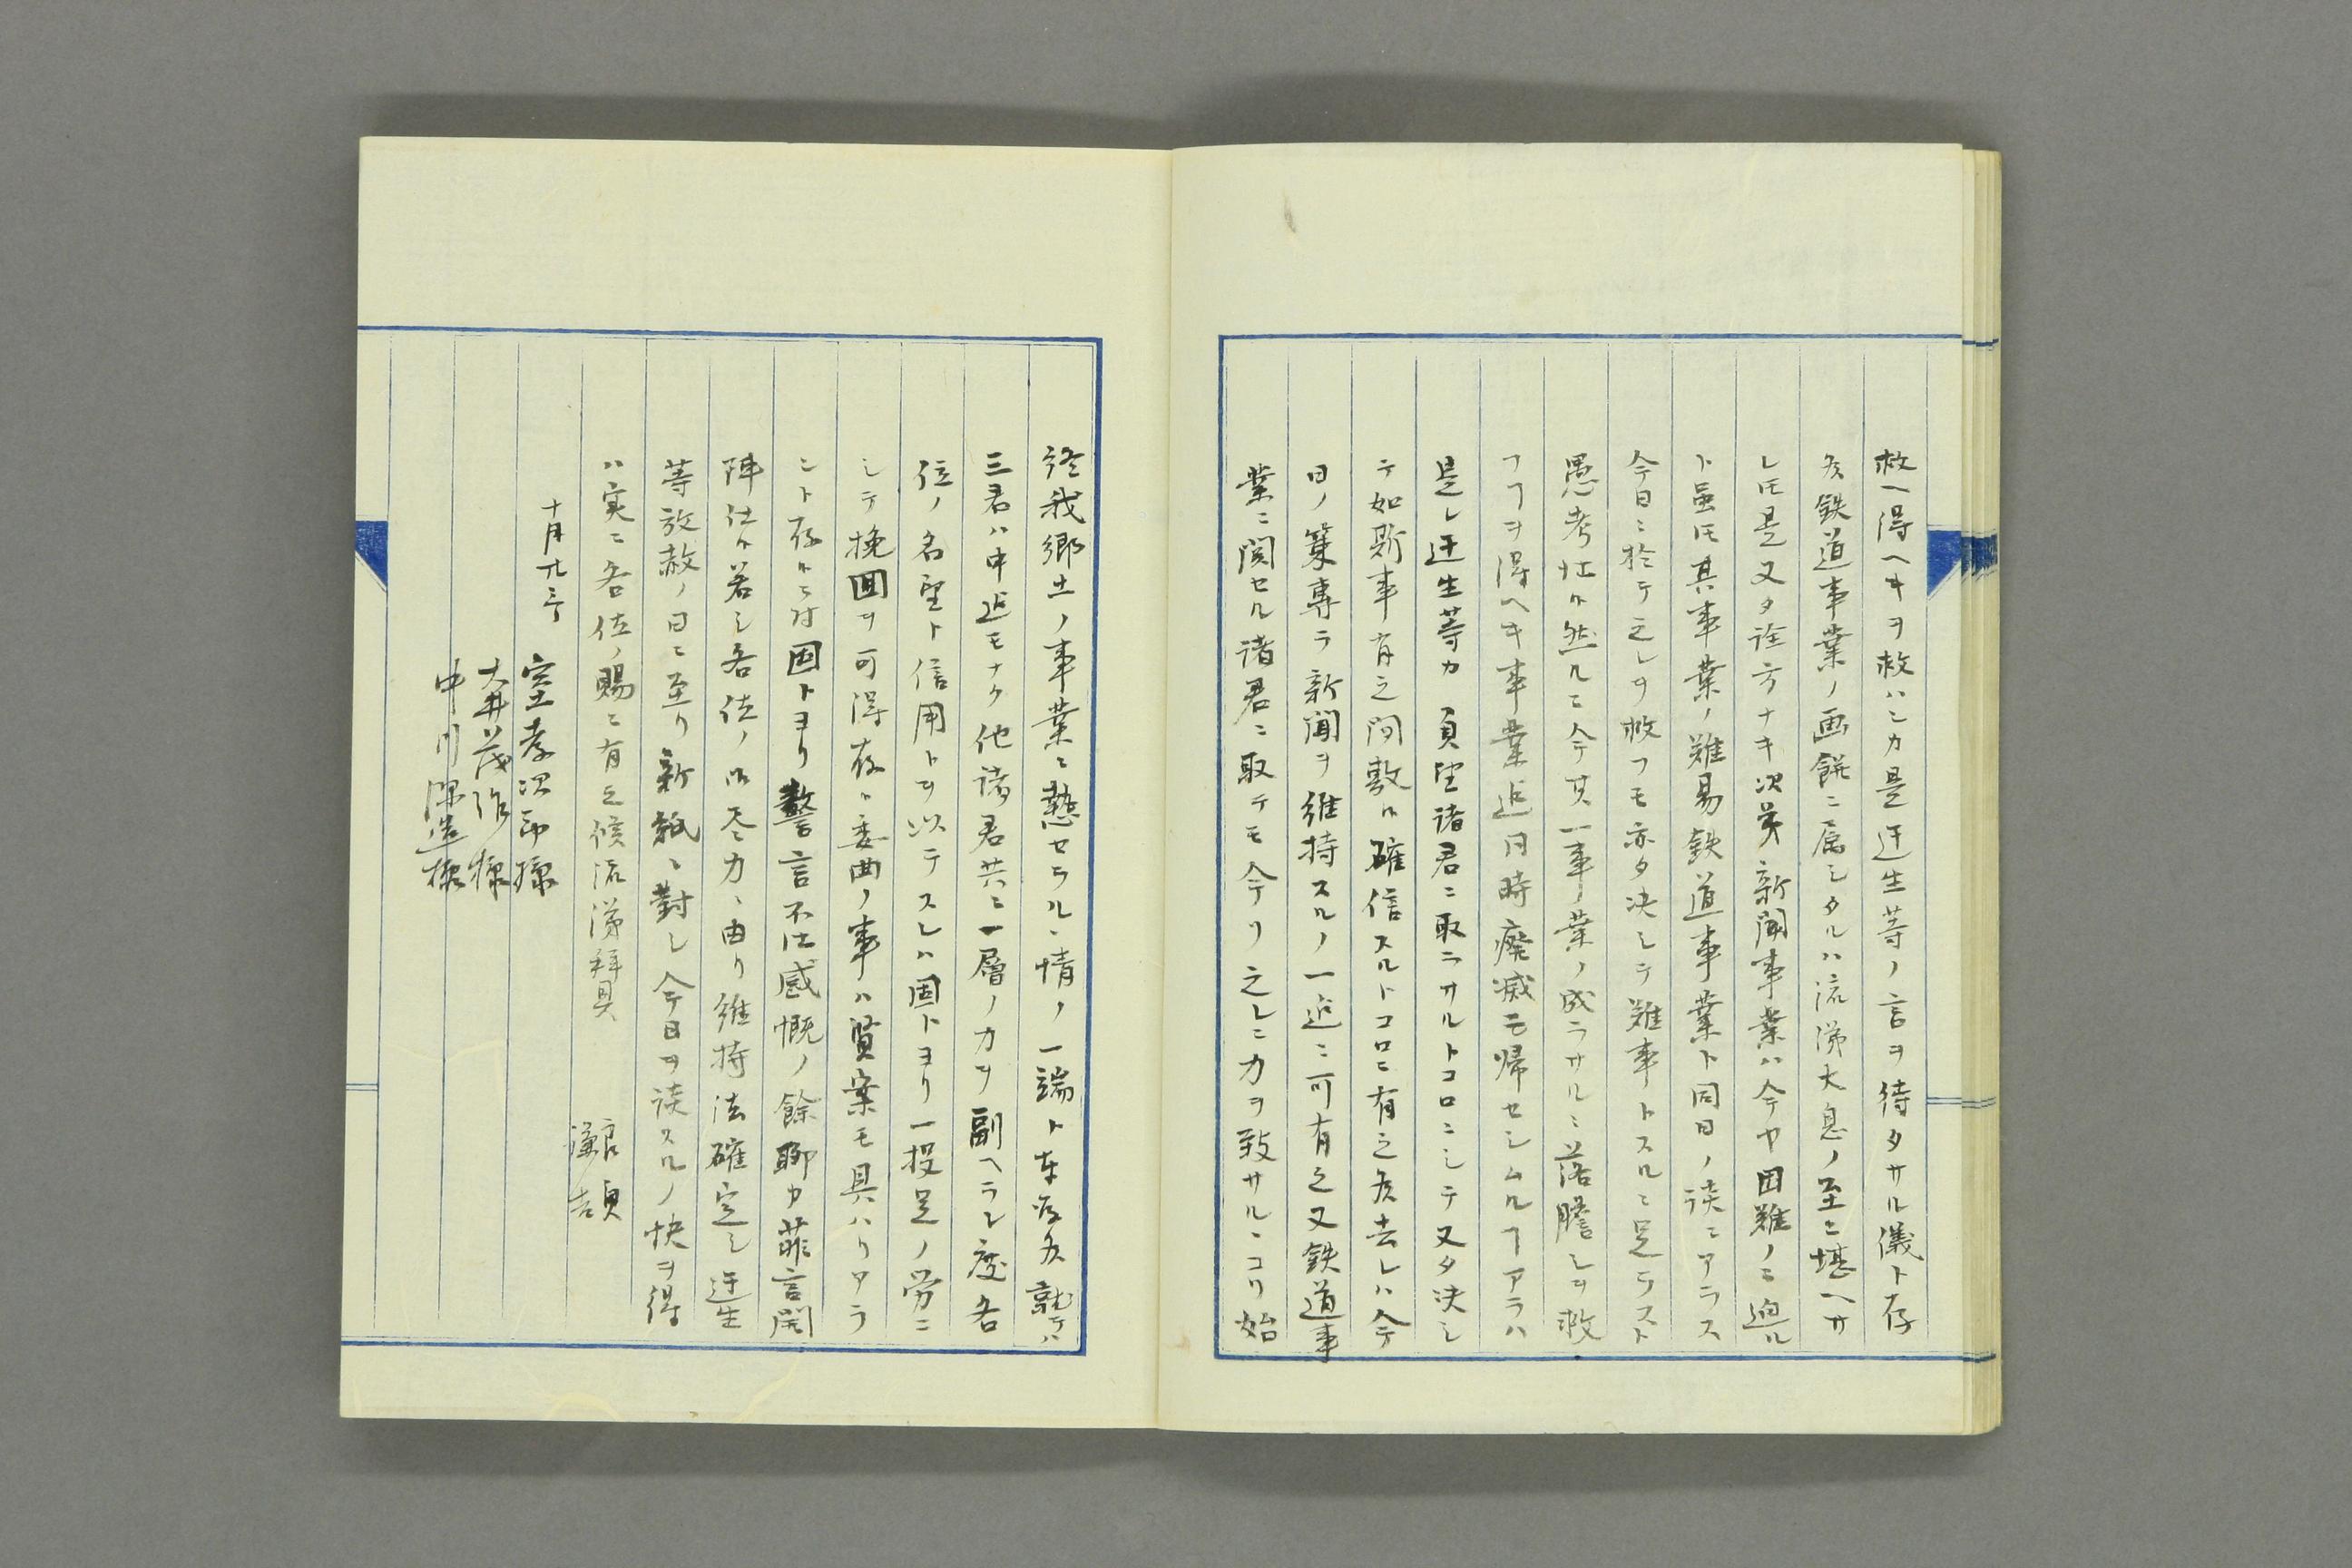 救ヘ得ヘキヲ救ハンカ是迂生等ノ言ヲ待タサル儀ト存
候鉄道事業ノ画餅ニ属シタルハ流涕大息ノ至ニ堪ヘサ
レ𪜈是又タ詮方ナキ次第新聞事業ハ今ヤ困難ノニ迫ル
ト虽𪜈其事業ノ難易鉄道事業ト同日ノ談ニアラス
今日ニ於テ之レヲ救フモ亦タ決シテ難事トスルニ足ラスト
愚考仕候然ルニ今其一事業ノ成ラサルニ落膽シヲ救
フヿヲ得ヘキ事業迄同時癈滅ニ帰セシムルヿアラハ
是レ迂生等カ負望諸君ニ取ラサルトコロニシテ又タ決シ
テ如斯事有之間敷候確信スルトコロニ有之候去レハ今
日ノ策専ラ新聞ヲ維持スルノ一途ニ可有之又鉄道事
業ニ関セル諸君ニ取テモ今リ之レニ力ヲ致サルヽコソ始
終我郷土ノ事業ニ懇セラルヽ情ノ一端ト奉存候就テハ
三君ハ申迄モナク他諸君共ニ一層ノ力ヲ副ヘラレ度各
位ノ名望ト信用トヲ以テスレハ固トヨリ一投足ノ労ニ
シテ挽回ヲ可得存候委曲ノ事ハ賢案モ具ハリアラ
ント存候ニ付固トヨリ贅言不仕感慨ノ餘聊カ菲言開
陣仕候若シ各位ノ御尽力ニ由リ維持法確定シ迂生
等放赦ノ日ニ至リ新紙ニ對シ今日ヲ談スルノ快ヲ得
ハ実ニ各位ノ賜ニ有之候流涕拜具
十月廿三日
室孝次郎様
大井茂作様
中川源造様